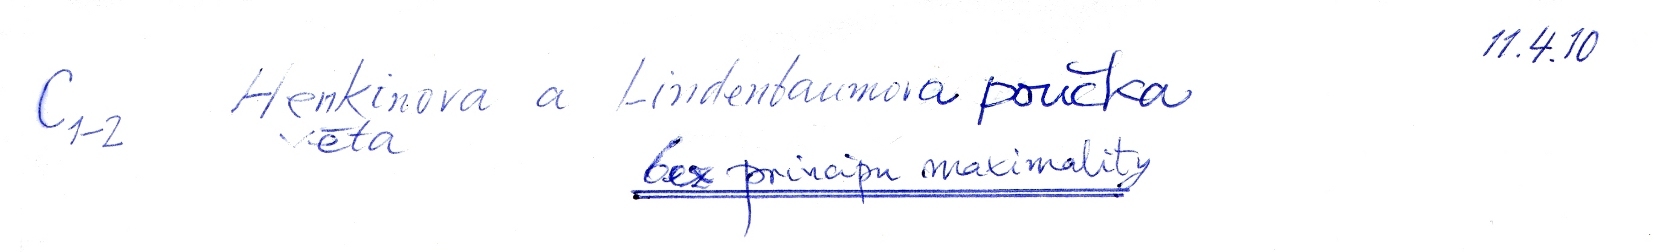 11.4.10
C1-2 Henkinova a Lindenbaumova poučka
věta
bez principu maximality